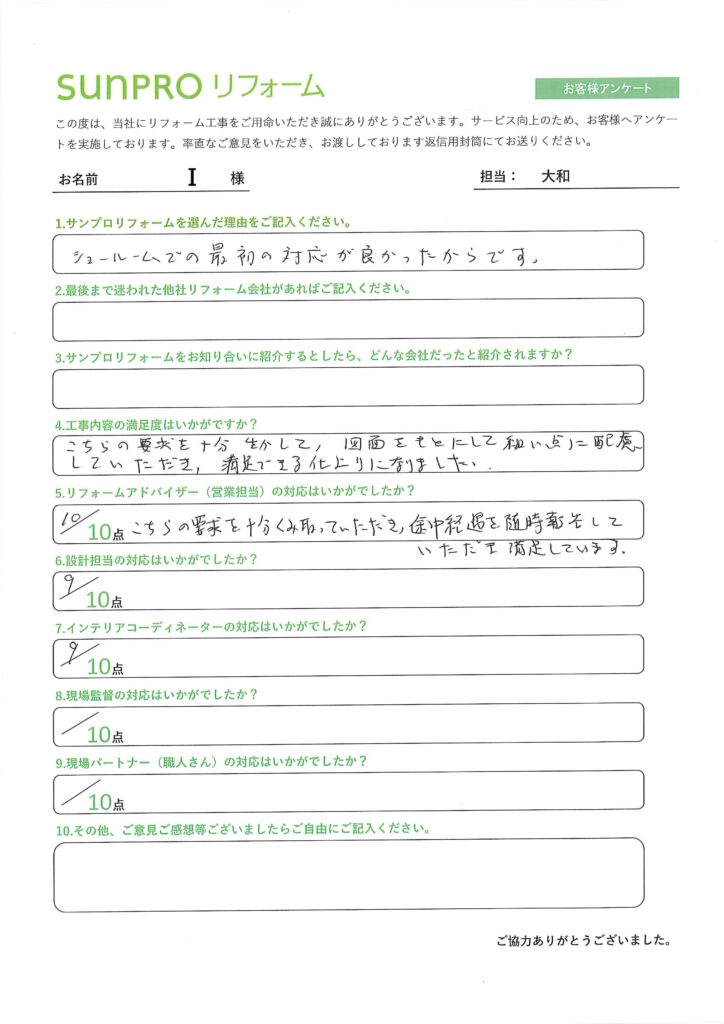 sunPRO リフォーム
お客様アンケート
この度は、当社にリフォーム工事をご用命いただき誠にありがとうございます。サービス向上のため、お客様へアンケー
トを実施しております。率直なご意見をいただき、お渡ししております返信用封筒にてお送りください。
お名前 I 様
担当： 大和
1.サンプロリフォームを選んだ理由をご記入ください。
ショールームでの最初の対応が良かったからです。
2.最後まで迷われた他社リフォーム会社があればご記入ください。
3.サンプロリフォームをお知り合いに紹介するとしたら、どんな会社だったと紹介されますか？
4.工事内容の満足度はいかがですか？
こちらの要求を十分生かして、図面をもとにして細い点に配慮
していただき、満足できる仕上りになりました。
5.リフォームアドバイザー（営業担当）の対応はいかがでしたか？
10/10点 こちらの要求を十分くみ取っていただき、途中経過を随時報告して
いただき満足しています。
6.設計担当の対応はいかがでしたか？
9/10点
7.インテリアコーディネーターの対応はいかがでしたか？
9/10点
8.現場監督の対応はいかがでしたか？
/10点
9.現場パートナー（職人さん）の対応はいかがでしたか？
/10点
10.その他、ご意見ご感想等ございましたらご自由にご記入ください。
ご協力ありがとうございました。